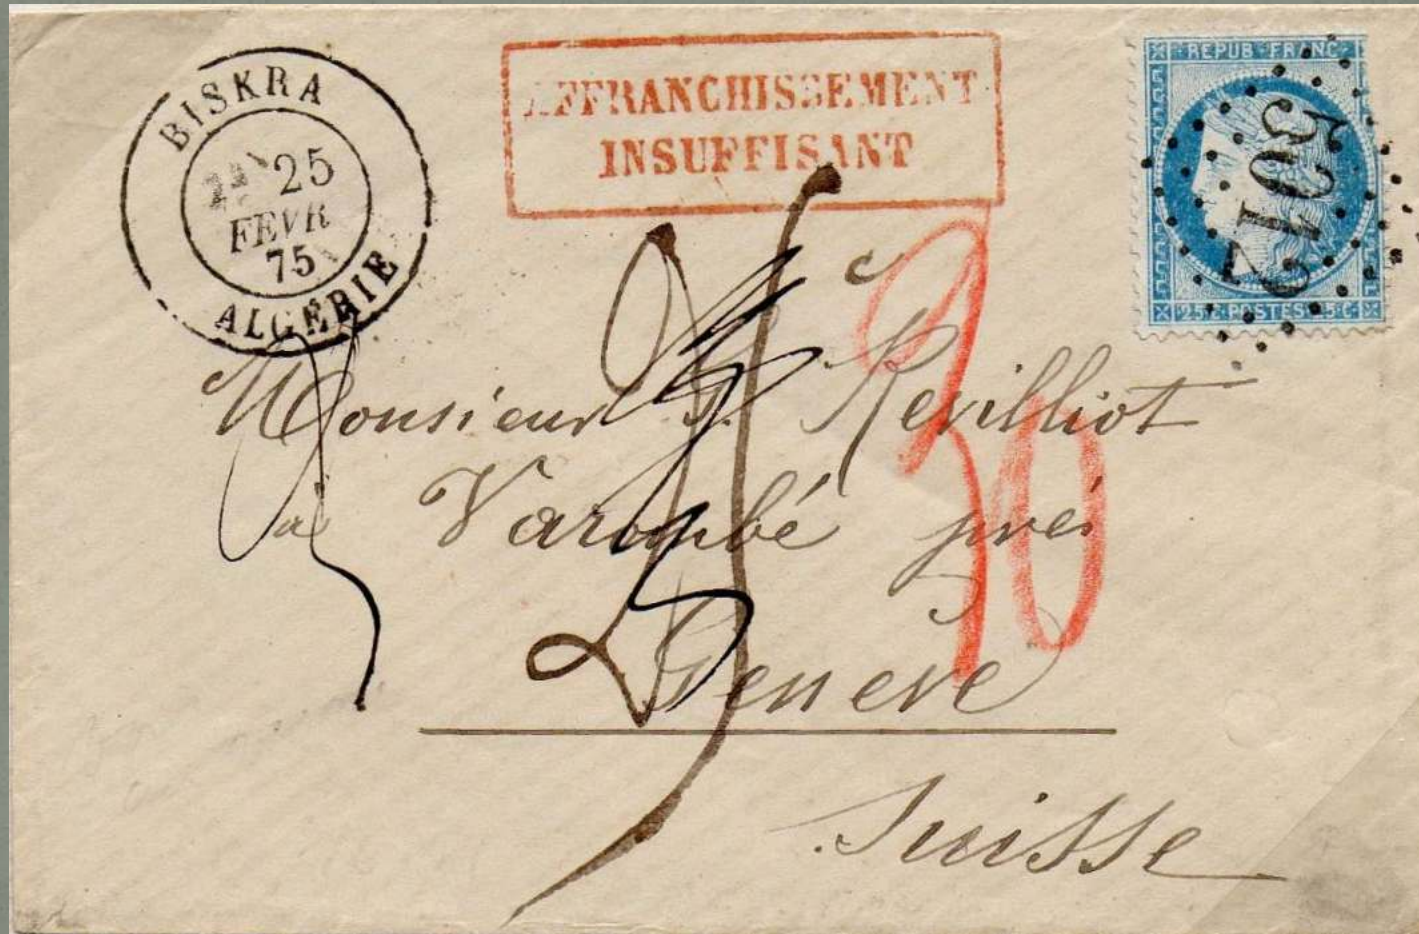 BISKRA
25
FEVR
75
ALGÉRIE
AFFRANCHISSEMENT
INSUFFISANT
REPUB·FRANC
25·C·POSTES·25·C·
30
Monsieur Revilliot
à Varembé près
Genève
Suisse